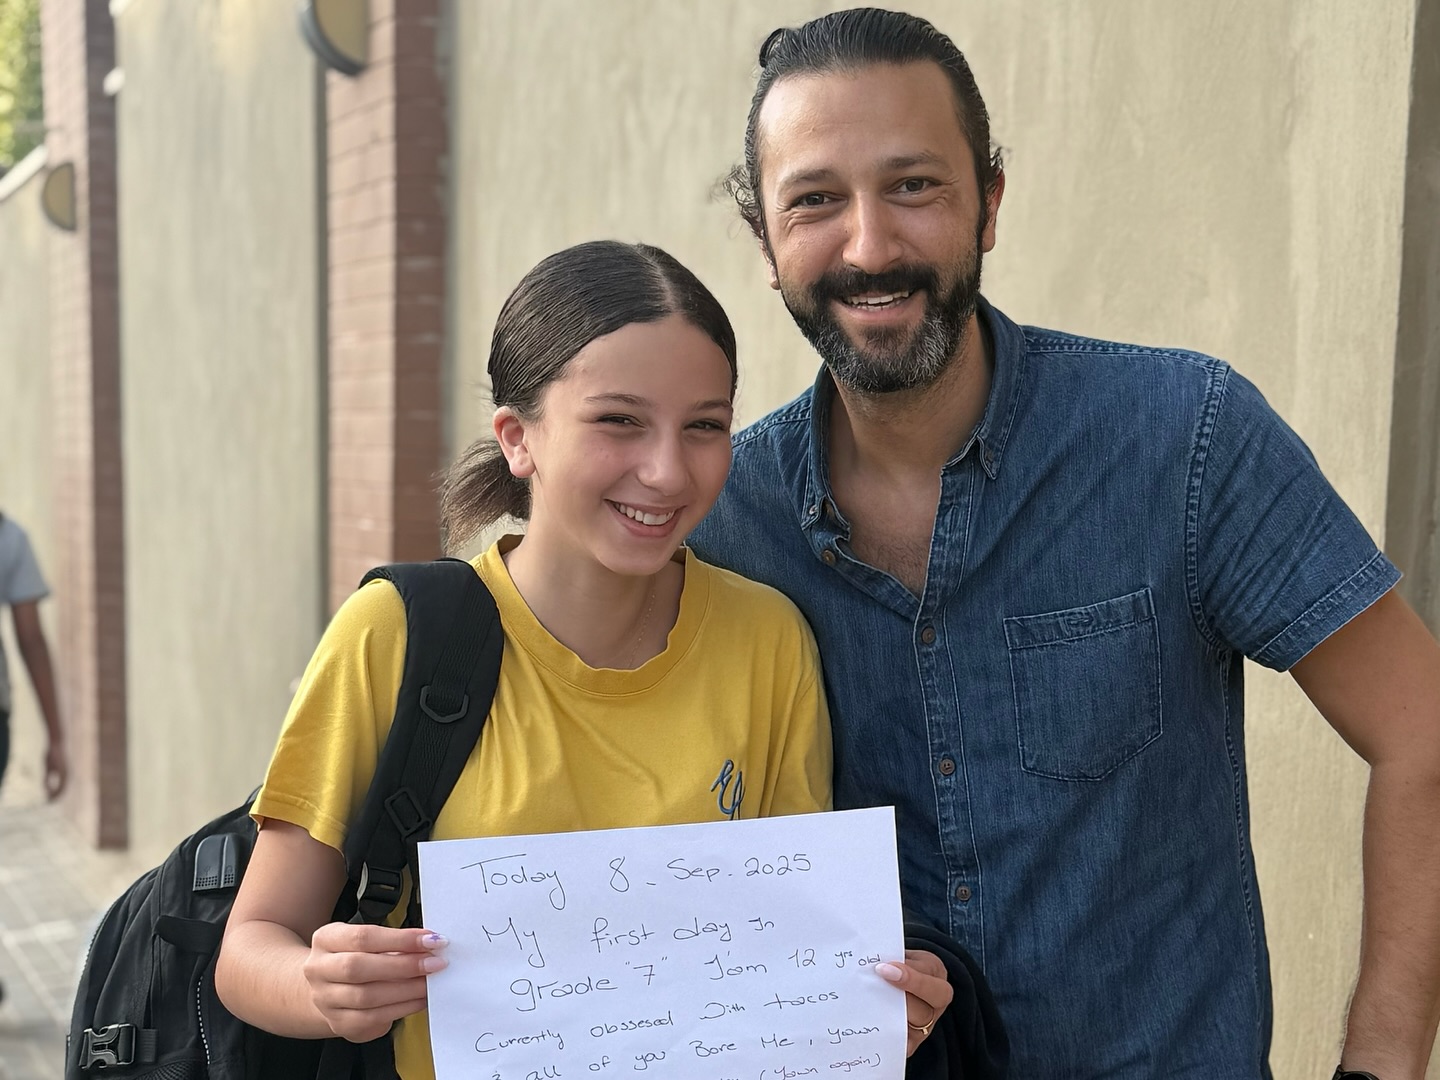 Today 8. Sep. 2025
My first day In
grade "7" I'am 12 yrs old
Currently obssesed With tacos
& all of you Bore Me, yawn
(yawn again)